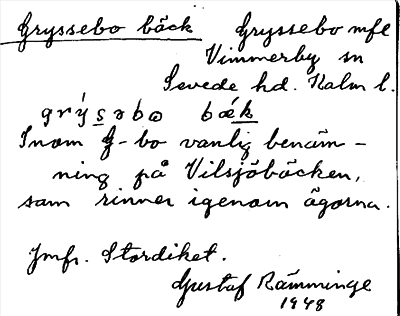 Gryssebo bäck Gryssebo mfl
Vimmerby sn
Sevede hd. Kalm l.
grýsəbo bǽk
Inom G-bo vanlig benäm-
ning på Vilsjöbäcken,
som rinner igenom ägorna.
Jmfr. Stordiket.
Gustaf Rämminge
1948